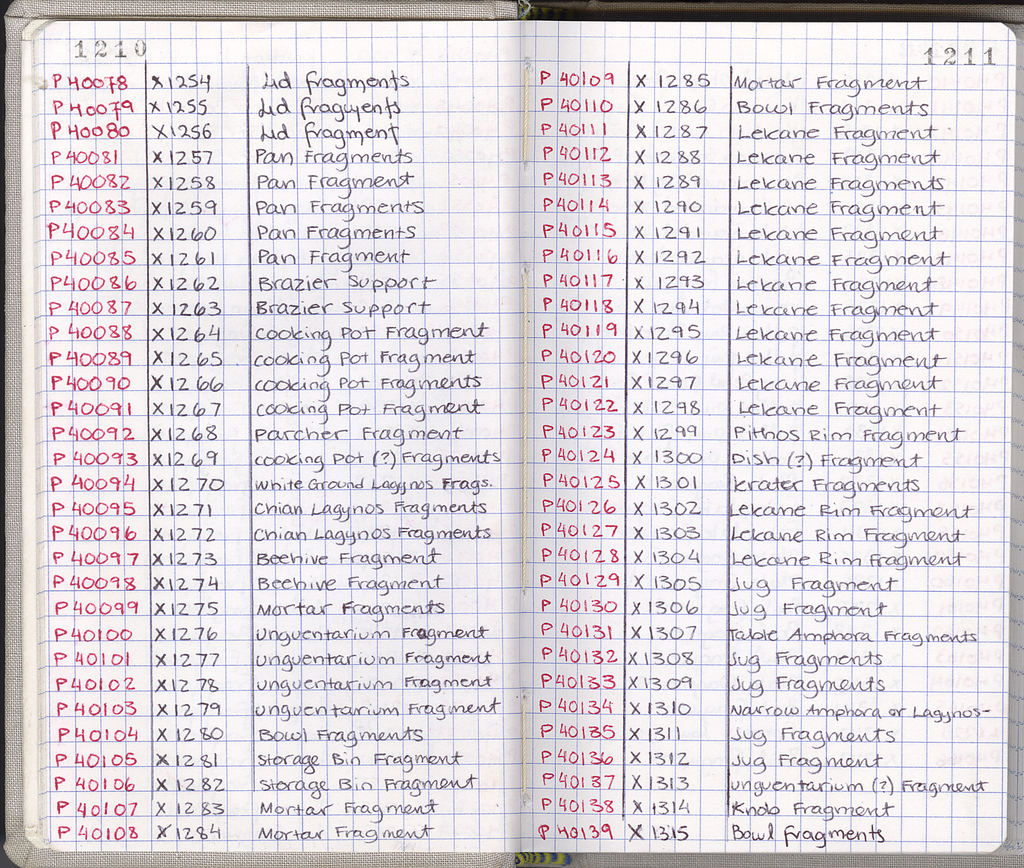 1210
P 40078 X 1254 Lid fragments
P 40079 X 1255 Lid fragments
P 40080 X 1256 Lid fragment
P 40081 X 1257 Pan Fragments
P 40082 X 1258 Pan Fragment
P 40083 X 1259 Pan Fragments
P 40084 X 1260 Pan Fragments
P 40085 X 1261 Pan Fragment
P 40086 X 1262 Brazier Support
P 40087 X 1263 Brazier Support
P 40088 X 1264 Cooking Pot Fragment
P 40089 X 1265 Cooking Pot Fragment
P 40090 X 1266 Cooking Pot Fragments
P 40091 X 1267 Cooking Pot Fragment
P 40092 X 1268 Parcher Fragment
P 40093 X 1269 Cooking Pot (?) Fragments
P 40094 X 1270 White Ground Lagynos Frags.
P 40095 X 1271 Chian Lagynos Fragments
P 40096 X 1272 Chian Lagynos Fragments
P 40097 X 1273 Beehive Fragment
P 40098 X 1274 Beehive Fragment
P 40099 X 1275 Mortar Fragments
P 40100 X 1276 Unguentarium Fragment
P 40101 X 1277 Unguentarium Fragment
P 40102 X 1278 Unguentarium Fragment
P 40103 X 1279 Unguentarium Fragment
P 40104 X 1280 Bowl Fragments
P 40105 X 1281 Storage Bin Fragment
P 40106 X 1282 Storage Bin Fragment
P 40107 X 1283 Mortar Fragment
P 40108 X 1284 Mortar Fragment
1211
P 40109 X 1285 Mortar Fragment
P 40110 X 1286 Bowl Fragments
P 40111 X 1287 Lekane Fragment
P 40112 X 1288 Lekane Fragment
P 40113 X 1289 Lekane Fragments
P 40114 X 1290 Lekane Fragment
P 40115 X 1291 Lekane Fragment
P 40116 X 1292 Lekane Fragment
P 40117 X 1293 Lekane Fragment
P 40118 X 1294 Lekane Fragment
P 40119 X 1295 Lekane Fragment
P 40120 X 1296 Lekane Fragment
P 40121 X 1297 Lekane Fragment
P 40122 X 1298 Lekane Fragment
P 40123 X 1299 Pithos Rim Fragment
P 40124 X 1300 Dish (?) Fragment
P 40125 X 1301 Krater Fragments
P 40126 X 1302 Lekane Rim Fragment
P 40127 X 1303 Lekane Rim Fragment
P 40128 X 1304 Lekane Rim Fragment
P 40129 X 1305 Jug Fragment
P 40130 X 1306 Jug Fragment
P 40131 X 1307 Table Amphora Fragments
P 40132 X 1308 Jug Fragments
P 40133 X 1309 Jug Fragments
P 40134 X 1310 Narrow Amphora or Lagynos-
P 40135 X 1311 Jug Fragments
P 40136 X 1312 Jug Fragment
P 40137 X 1313 Unguentarium (?) Fragment
P 40138 X 1314 Knob Fragment
P 40139 X 1315 Bowl fragments